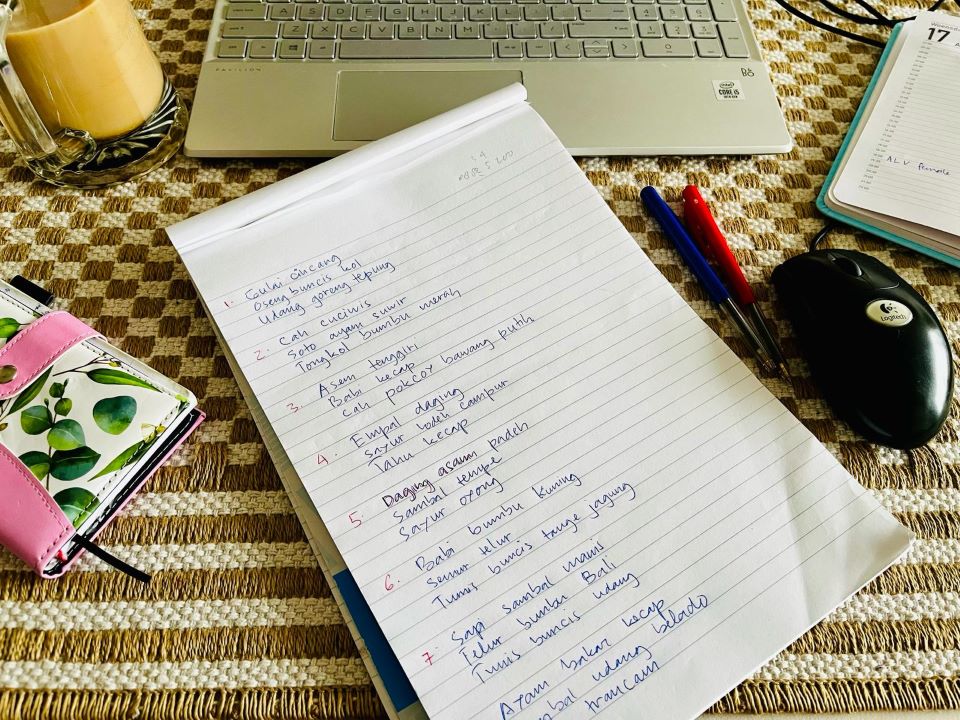 PAVILION
B&O
intel
CORE i5
17
ALV female
Logitech
1. Gulai cincang
Oseng buncis kol
Udang goreng tepung
2. Cah cuciwis
Soto ayam suwir
Tongkol bumbu merah
3. Asem tenggiri
Babi kecap
Cah pokcoy bawang putih
4. Empal daging
Sayur lodeh campur
Tahu kecap
5. Daging asam padeh
Sambal tempe
Sayur oyong
6. Babi bumbu kuning
Semur telur
Tumis buncis tauge jagung
7. Sapi sambal manis
Telur bumbu Bali
Tumis buncis udang
Ayam bakar kecap
udang belado
trancam